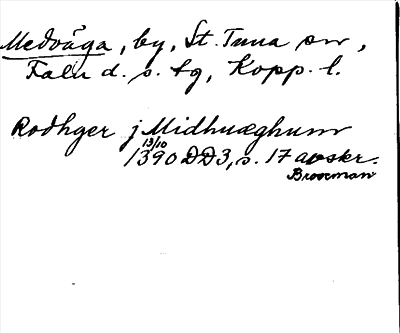 Medväga, by, St. Tuna sn,
Falu d. s. tg, Kopp. l.
Rodhger j Midhuæghum
13/10
1390 DD3, s. 17 avskr.
Brooman